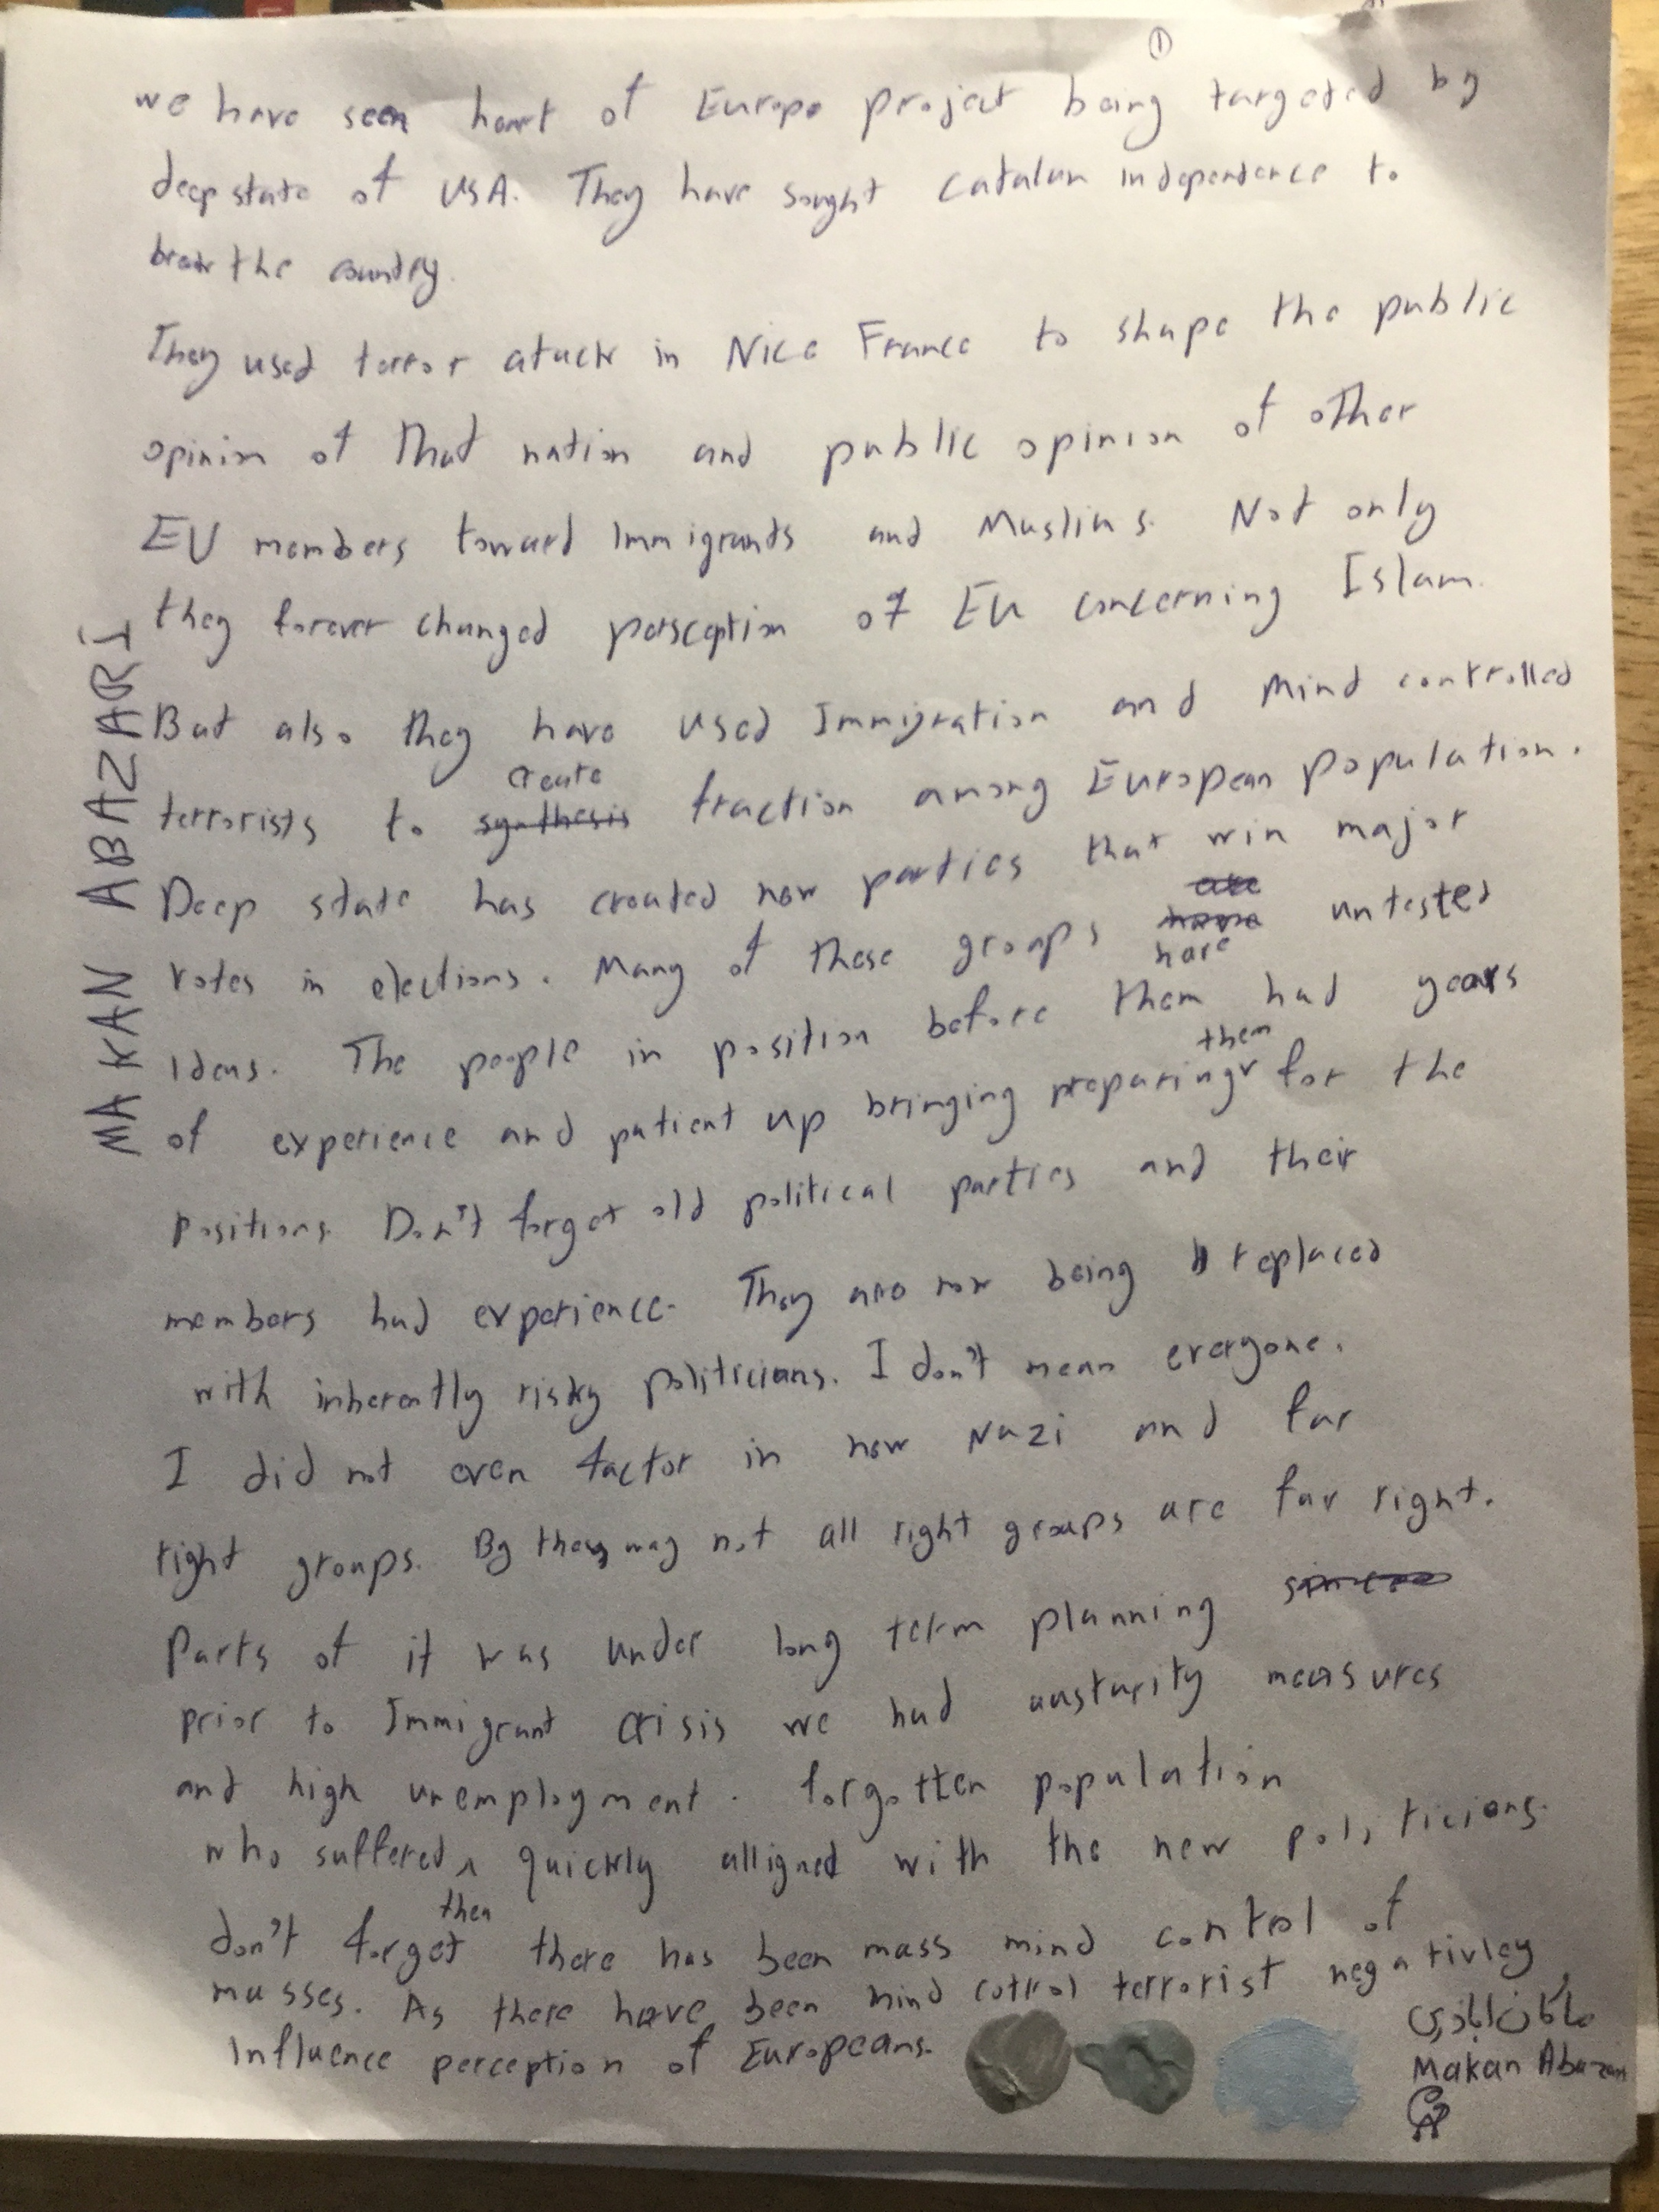 ①
we have seen heart of Europe project being targeted by
deep state of USA. They have sought catalan independence to
break the country.
They used terror atack in Nice France to shape the public
opinion of that nation and public opinion of other
EU members toward Immigrants and Muslims. Not only
they forever changed persception of EU concerning Islam.
But also they have used Immigration and mind controlled
create
terrorists to synthesis fraction among European population.
Deep state has created new parties that win major
votes in elections. Many of these groups have untested
ideas. The people in position before them had years
them
of experience and patient up bringing preparing for the
positions. Don't forget old political parties and their
members had experience. They are now being replaced
with inherently risky politicians. I don't mean everyone.
I did not even factor in new Nazi and far
right groups. By they way not all right groups are far right.
Parts of it was under long term planning
prior to Immigrant crisis we had austurity measures
and high unemployment. forgotten population
who suffered quickly alligned with the new politicians.
then
don't forget there has been mass mind control of
masses. As there have been mind cotrol terrorist negativley
Influence perception of Europeans.
ماکان اباذری
Makan Abazari
MAKAN ABAZARI